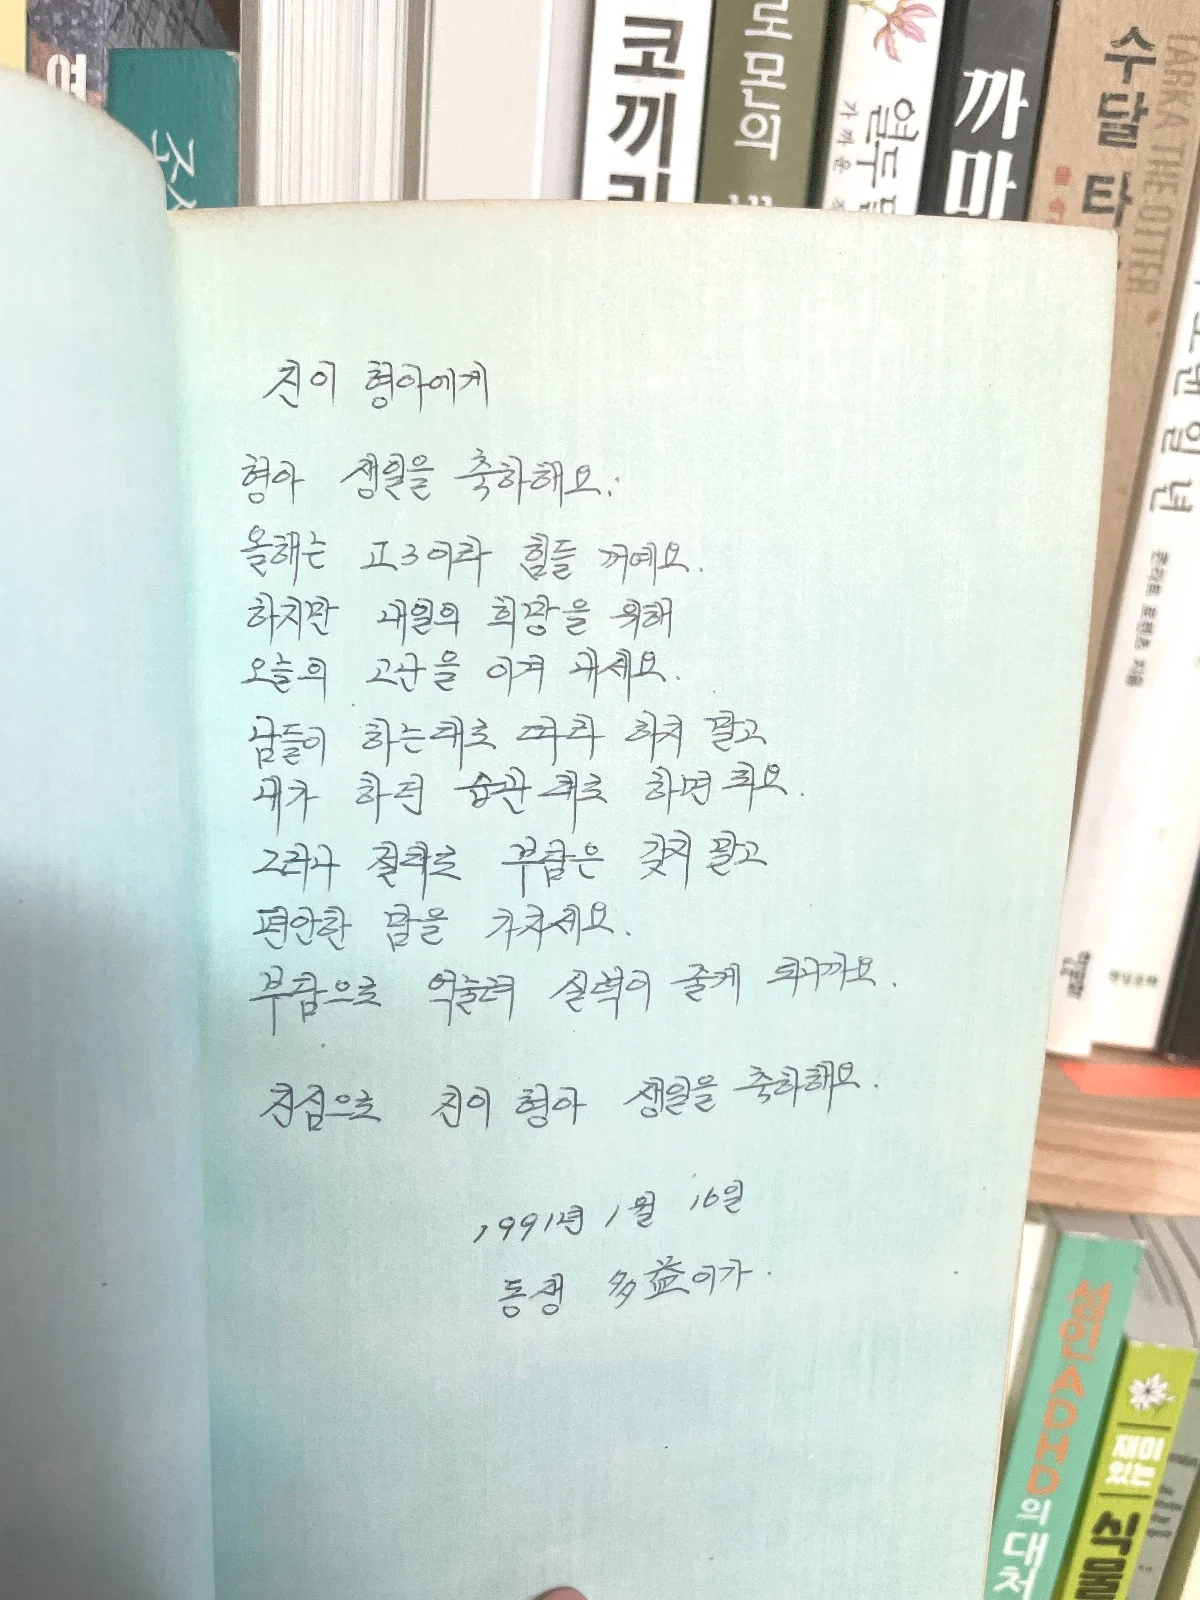 코끼리
로몬의
열두 달
가 까 운
까마
수달 타
TARKA THE OTTER
일 년
진이 형아에게
형아 생일을 축하해요.
올해는 고3이라 힘들 꺼예요.
하지만 내일의 희망을 위해
오늘의 고난을 이겨 내세요.
남들이 하는대로 따라 하지 말고
내가 하던 습관 대로 하면 되요.
그러나 절대로 부담은 갖지 말고
편안한 맘을 가지세요.
부담으로 억눌려 실력이 줄게 되니까요.
진심으로 진이 형아 생일을 축하해요.
1991년 1월 16일
동생 多益이가.
성인 ADHD의 대처
재미있는
식물